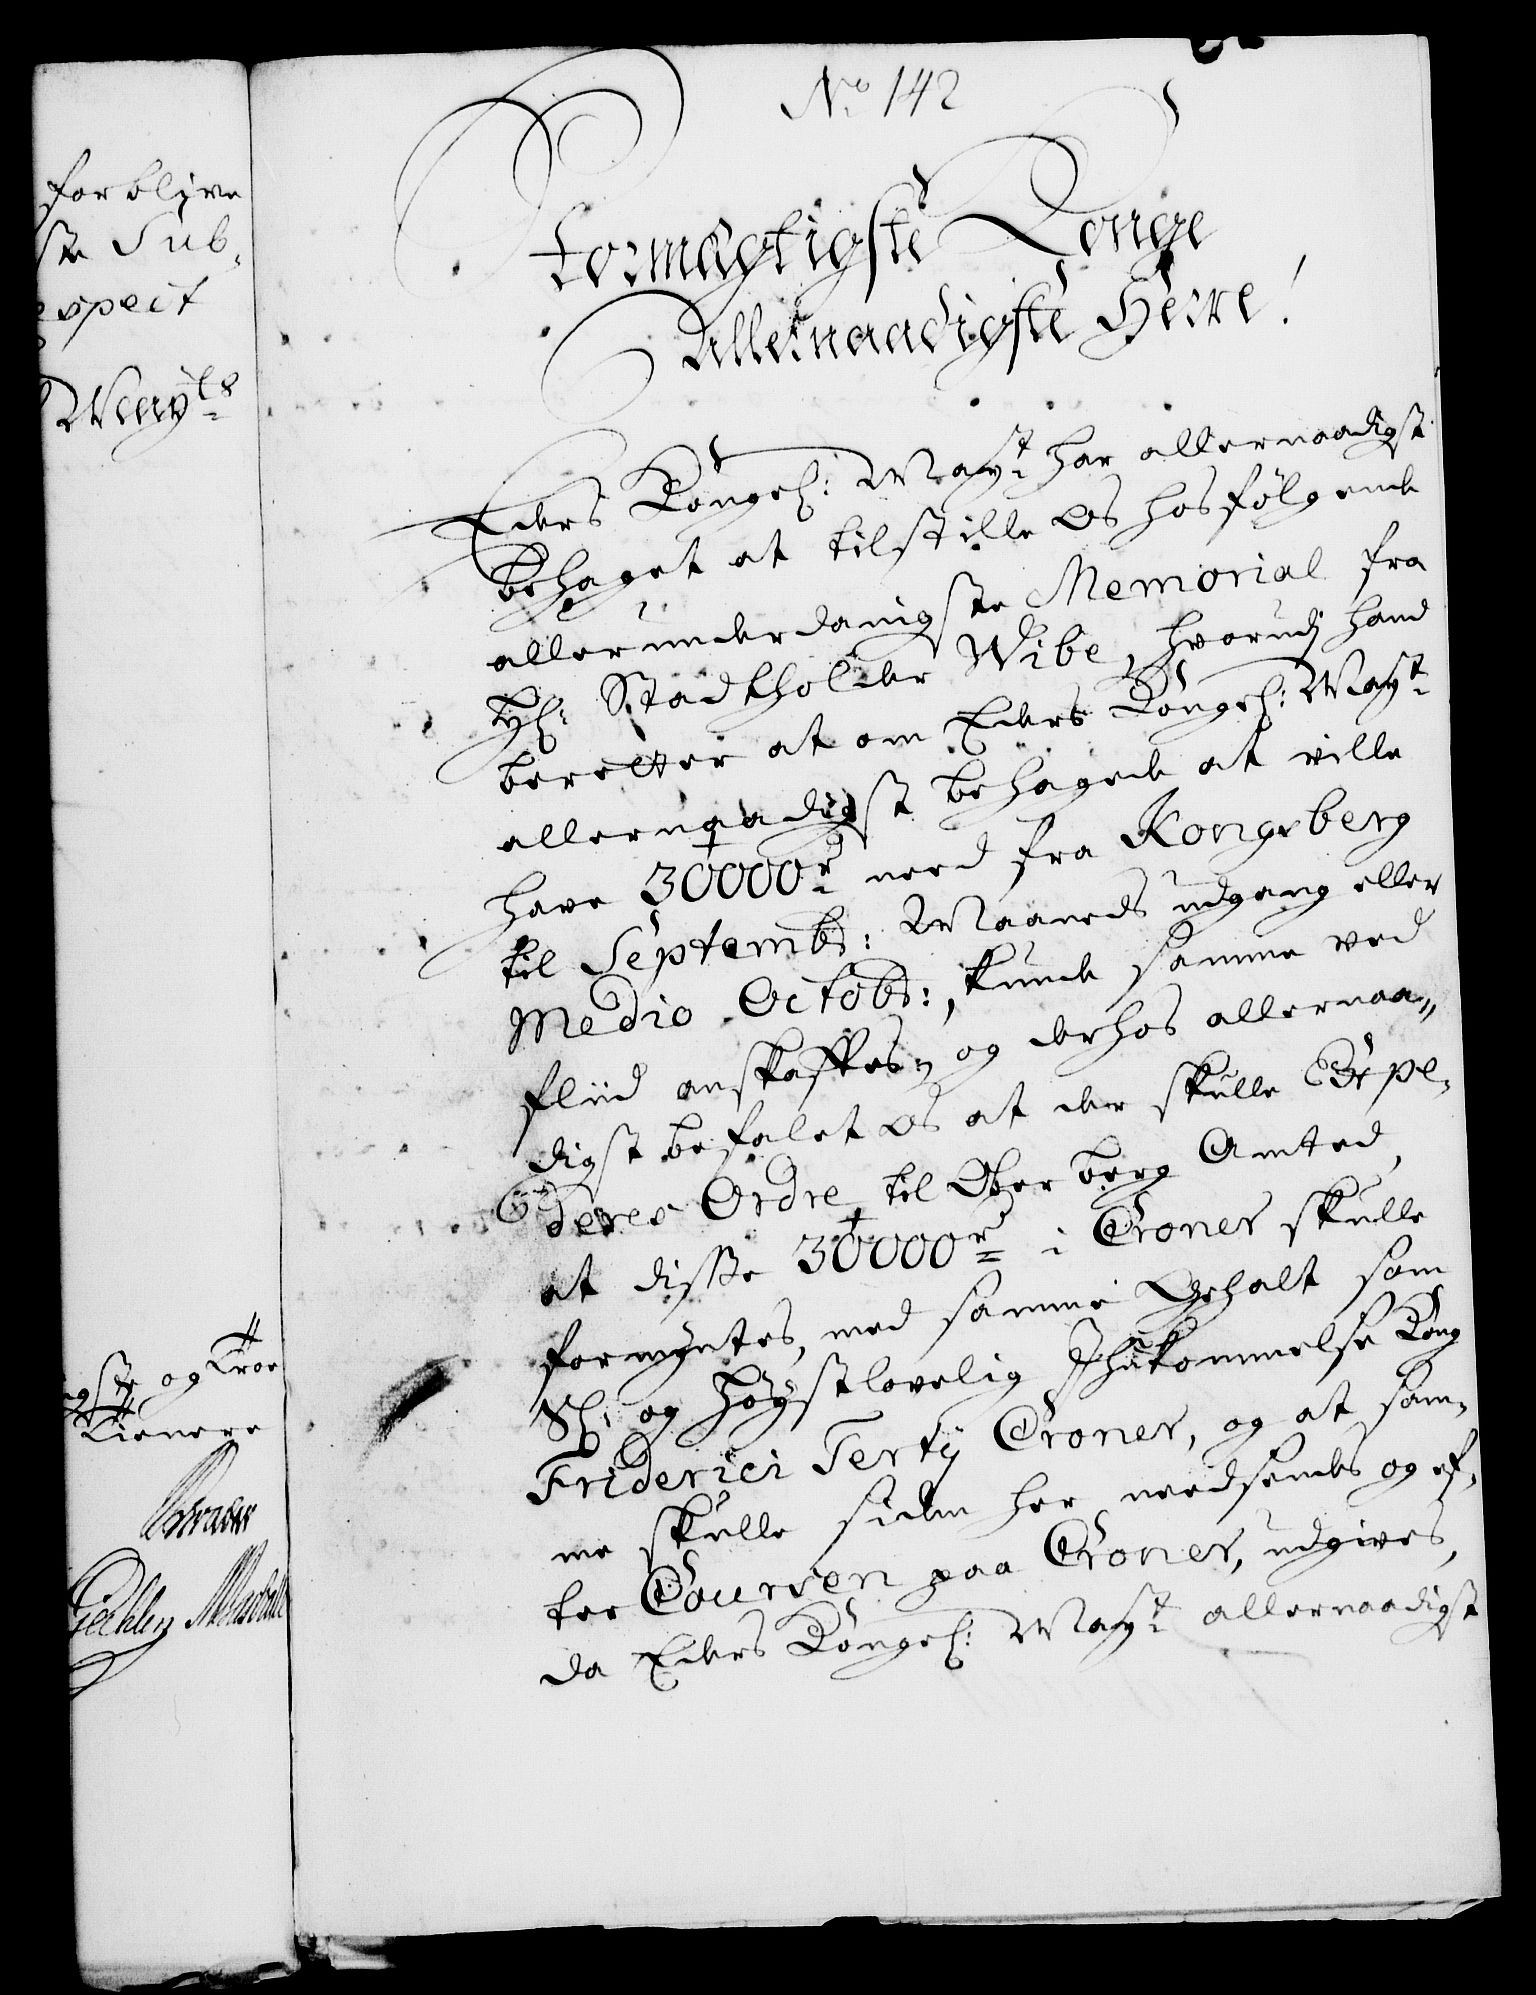 No 142
Stormægtigste Konge
Allernaadigste Herre!
Eders Kongel: Mayt har allernaadigst
behaget at tilstille os hosfølgende
allerunderdanigste Memorial fra
Hr: Stadtholder Wibe, hvorudj hand
beretter at om Eders Kongel: Mayt
allernaadigst behagede at ville
have 30000 rd need fra Kongsberg
til Septembr: Maaneds udgang eller
Medio Octobr:, kunde samme ved
fliid anskaffes, og derhos allernaa„
digst befalet os at der skulle Expe„
deres Ordre til Ober berg Amted,
at disse 30000 rd i Croner skulle
formyntes, med samme Gehalt som
Sl: og Høystlovelig Ihukommelse Kong
Friderici Tertij Croner, og at sam„
me skulle siden her needsendes og ef„
ter Coursen paa Croner, udgives,
da Eders Kongel: Mayt allernaadigst
forblive
ste Sub„
espect
Mayts
gste og Troe
Tienere